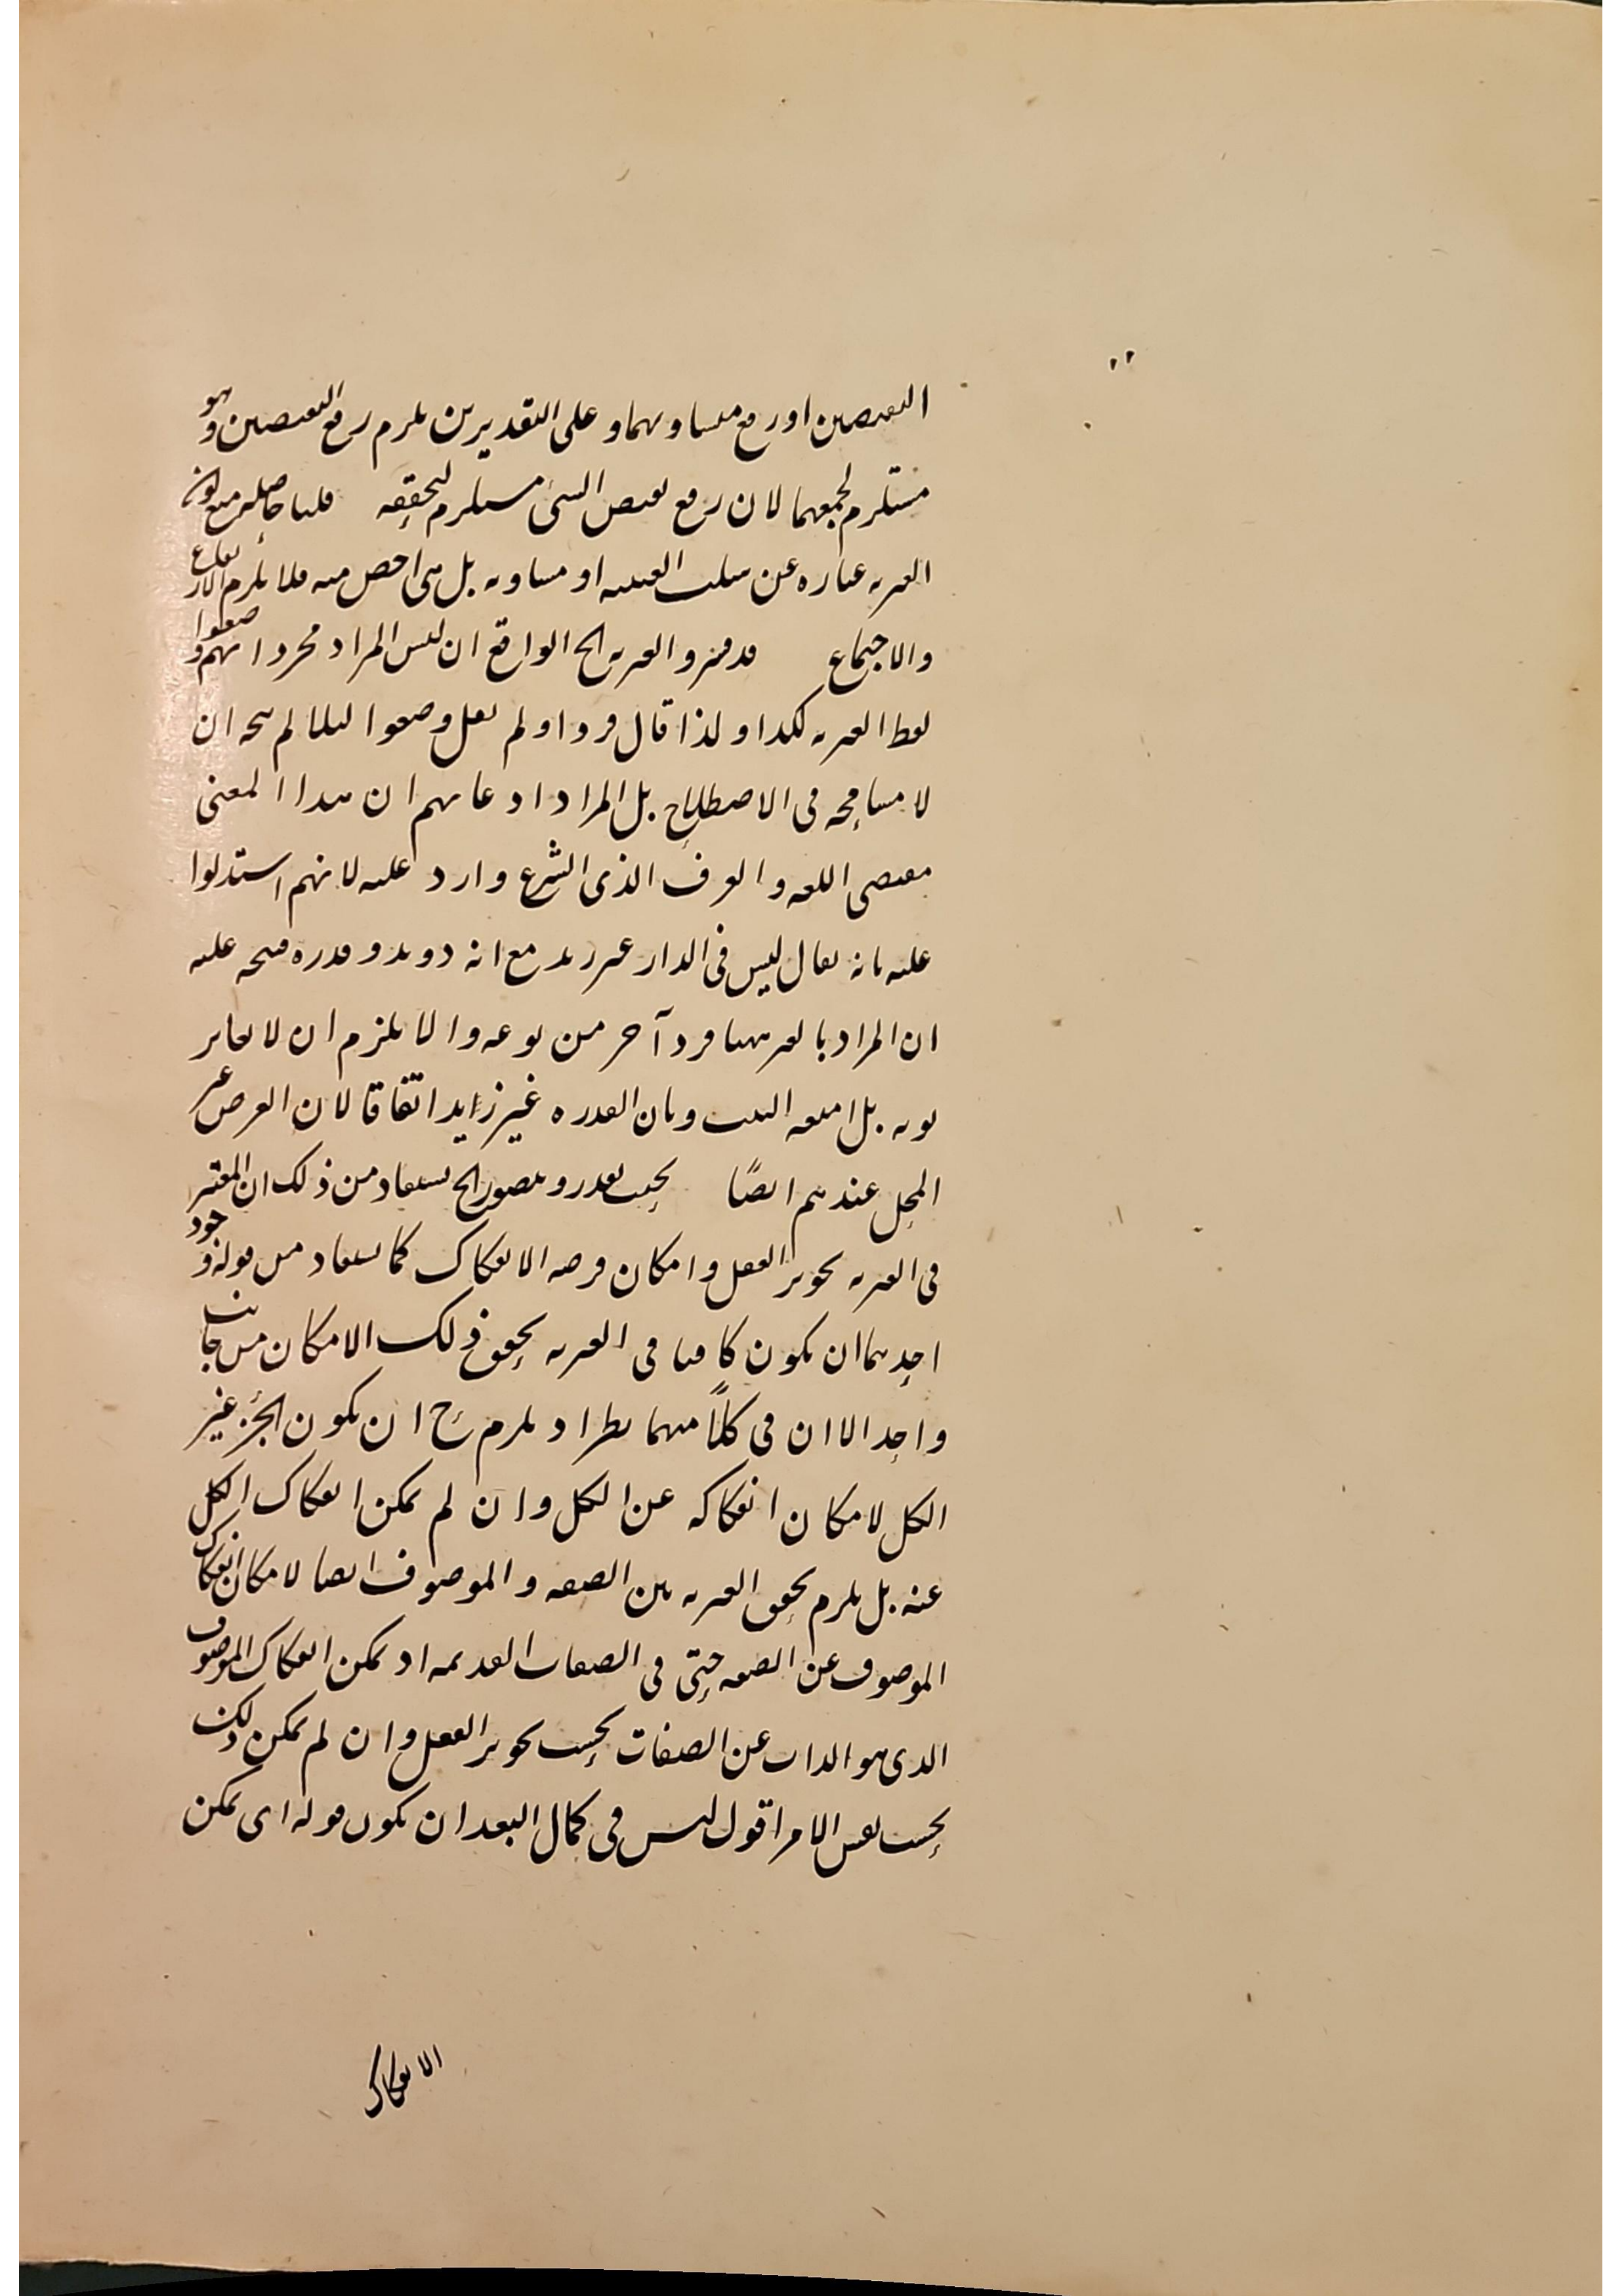 النقيضين او رفع متساويهما و على التقديرين يلزم رفع النقيضين وهو
مستلزم لجمعهما لان رفع نقيض الشئ مستلزم لتحققه قلنا حاصله منع كون
الغيرية عبارة عن سلب العينية او مساويه بل هى اخص منه فلا يلزم الارتفاع
والاجتماع قد فسروا الغيرية الخ الواقع ان ليس المراد مجرد انهم وضعوا
لفظ الغيرية لكذا و لذا قال فسروا و لم يقل وضعوا لئلا لم يتجه ان
لا مسامحة فى الاصطلاح بل المراد ادعائهم ان هذا المعنى
مقتضى اللغة و العرف الذى الشرع وارد عليه لانهم استدلوا
عليه بانه يقال ليس فى الدار غير زيد مع انه ذو يد و قدرة فيتجه عليه
ان المراد بالغير ههنا فرد آخر من نوعه و الا يلزم ان لا يغاير
ثوبه بل امتعة البيت و بان القدرة غير زايد اتفاقا لان العرض غير
المحل عندهم ايضًا بحيث يقدر و يتصور الخ يستفاد من ذلك ان المعتبر
فى الغيرية تجويز العقل و امكان فرضه الانفكاك كما يستفاد من قوله وجود
احدهما ان يكون كافيا فى الغيرية تحقق ذلك الامكان من جانب
واحد الا ان فى كلاً منهما نظرا اذ يلزم ح ان يكون الجزء غير
الكل لامكان انفكاكه عن الكل و ان لم يمكن انفكاك الكل
عنه بل يلزم تحقق الغيرية بين الصفة و الموصوف ايضا لامكان انفكاك
الموصوف عن الصفة حتى فى الصفات القديمة اذ يمكن انفكاك الموصوف
الذى هو الذات عن الصفات بحسب تجويز العقل و ان لم يمكن ذلك
بحسب نفس الامر اقول ليس فى كمال البعد ان يكون قوله اى يمكن
الانفكاك